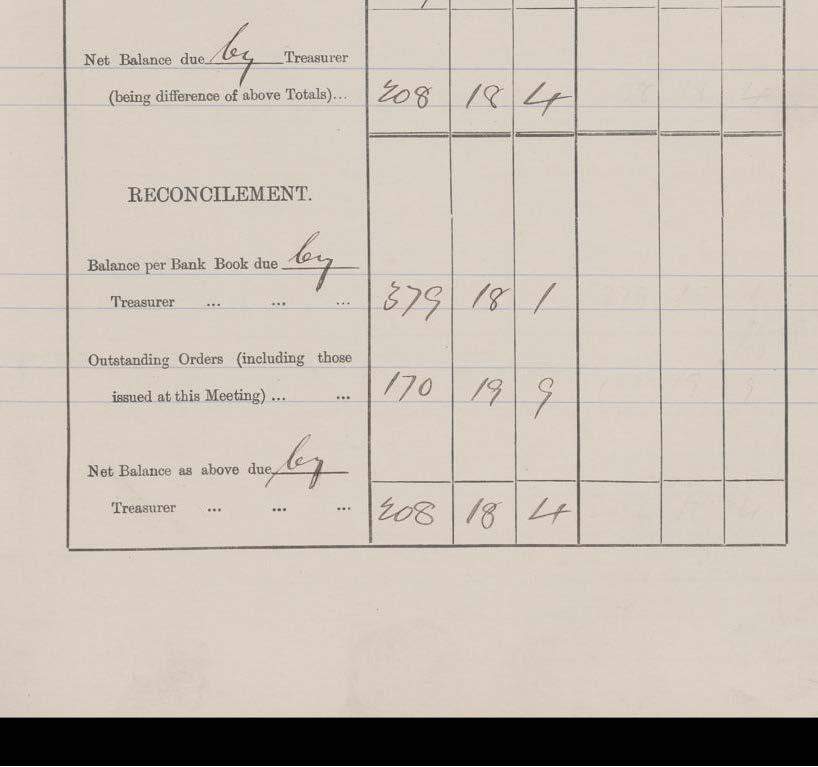 Net Balance due by Treasurer
(being difference of above Totals)... 208 18 4
RECONCILEMENT.
Balance per Bank Book due by
Treasurer ... ... ... 379 18 1
Outstanding Orders (including those
issued at this Meeting) ... ... 170 19 9
Net Balance as above due by
Treasurer ... ... ... 208 18 4